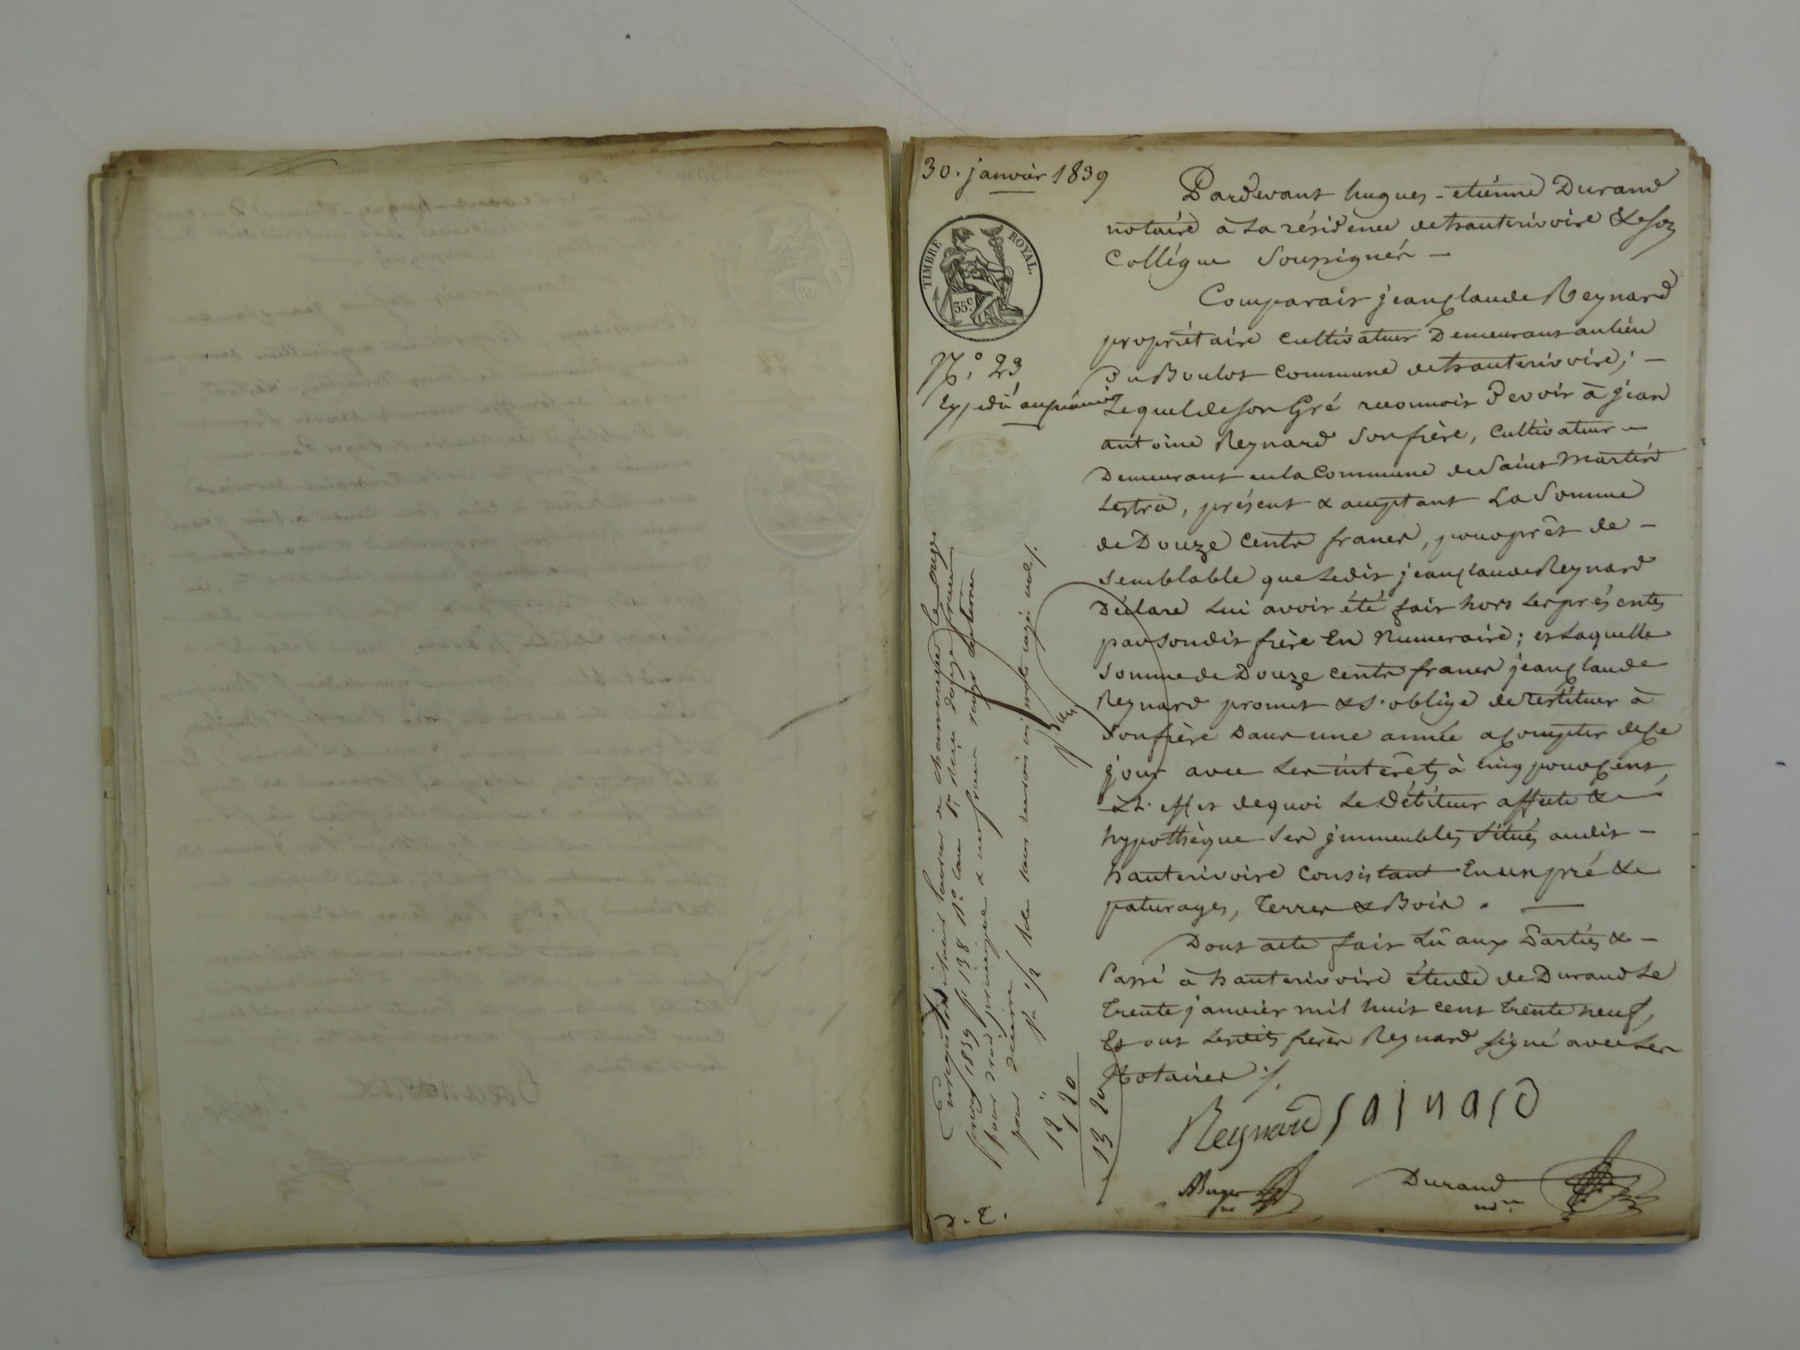 30. janvier 1839
TIMBRE ROYAL.
35c
N.° 23
Expédié au créancier
Pardevant hugues-etiénne Durand
notaire à la résidence de hauterivoire & Son
Collégue Soussignés —
Comparait jean Claude Reynard
propriétaire cultivateur Demeurant au lieu
Du Boulot commune de hauterivoire; —
Lequel de son Gré reconnoit Devoir à jean
antoine Reynard Son frère, cultivateur —
Demeurant en la commune de Saint Martin
Lestra, présent & acceptant La Somme
de Douze cents francs, pour prêt de —
semblable que Ledit jean Claude Reynard
Déclare Lui avoir été fait hors Les présentes
par Sondit frère En Numeraire; et Laquelle
Somme de Douze cents francs jean Claude
Reynard promet & S'oblige de restituer à
Son frère Dans une année a Compter de Ce
jour avec Les intérêts à cinq pour Cent,
à L'effet de quoi Le Débiteur affecte &
hypothèque Ses jmmeubles Situés audit —
hauterivoire consistant En un pré &
paturages, Terres & Bois. —
Dont acte fait Lû aux Parties & —
Passé à hauterivoire étude de Durand Le
Trente janvier mil huit cent trente neuf,
Et ont Lesdits frères Reynard signé avec Les
Notaires ./.
Reynard rainard
Durand
nore
Enregistré à Saint Laurent de Chamousset le onze
février 1839 fo 138 Ro case 1re reçu douze francs
pour droit principal & un franc vingt centimes
pour décime
12 "
1 20
13 20
D. E.